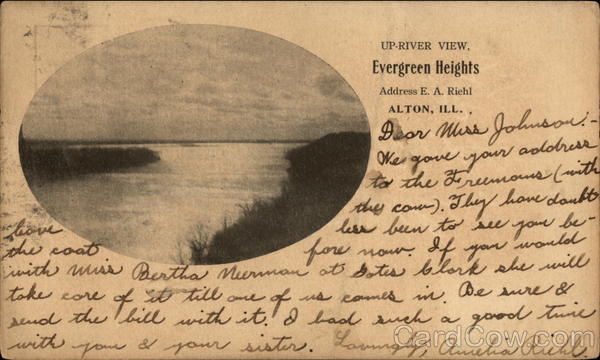 UP-RIVER VIEW,
Evergreen Heights
Address E. A. Riehl
ALTON, ILL.,
Dear Miss Johnson:-
We gave your address
to the Freemans (with
the cow). They have doubt
less been to see you be-
fore now. If you would
leave
the coat
with Miss Bertha Neerman at Gates Clark she will
take care of it till one of us comes in. Be sure &
send the bill with it. I had such a good time
with you & your sister. Lovingly Amelia Riehl.
CardCow.com